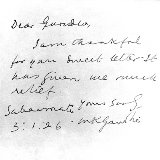 Dear Gurudev,
I am thankful
for your sweet letter. It
has given me much
relief
Sabarmati Yours Sincly
3.1.26 MKGandhi